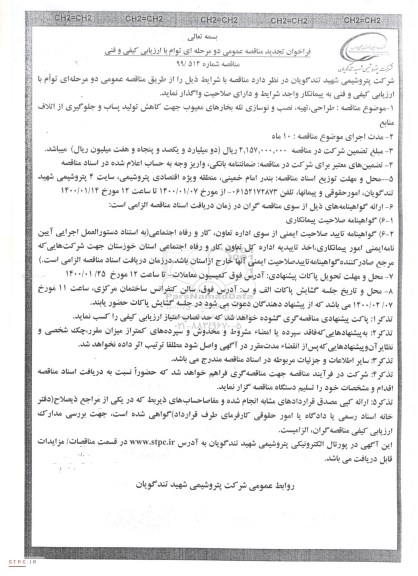 CH2=CH2 CH2=CH2 CH2=CH2 CH2=CH2 CH2=CH2
بسمه تعالی
فراخوان تجدید مناقصه عمومی دو مرحله ای توام با ارزیابی کیفی و فنی
مناقصه شماره ۹۹/۵۱۴
شرکت پتروشیمی شهید تندگویان
شرکت پتروشیمی شهید تندگویان در نظر دارد مناقصه با شرایط ذیل را از طریق مناقصه عمومی دو مرحله‌ای توأم با
ارزیابی کیفی و فنی به پیمانکار واجد شرایط و دارای صلاحیت واگذار نماید.
۱-موضوع مناقصه : طراحی،تهیه، نصب و نوسازی تله بخارهای معیوب جهت کاهش تولید پساب و جلوگیری از اتلاف
منابع
۲- مدت اجرای موضوع مناقصه : ۱۰ ماه
۳- مبلغ تضمین شرکت در مناقصه ۲,۱۵۷,۰۰۰,۰۰۰ ریال (دو میلیارد و یکصد و پنجاه و هفت میلیون ریال) میباشد.
۴-تضمین‌های معتبر برای شرکت در مناقصه: ضمانتنامه بانکی، واریز وجه به حساب اعلام شده در اسناد مناقصه
۵-محل و مهلت توزیع اسناد مناقصه: بندر امام خمینی، منطقه ویژه اقتصادی پتروشیمی، سایت ۴ پتروشیمی شهید
تندگویان، امورحقوقی و پیمانها، تلفن ۰۶۱۵۲۱۷۲۸۷۳- از مورخ ۱۴۰۰/۰۱/۰۷ تا ساعت ۱۲ مورخ ۱۴۰۰/۰۱/۱۴
۶- ارائه گواهینامه‌های ذیل از سوی مناقصه گران در زمان دریافت اسناد مناقصه الزامی است:
۶-۱) گواهینامه صلاحیت پیمانکاری
۶-۲) گواهینامه تایید صلاحیت ایمنی از سوی اداره تعاون، کار و رفاه اجتماعی(به استناد دستورالعمل اجرایی آیین
نامه‌ایمنی امور پیمانکاری،اخذ تاییدیه اداره کل تعاون کار و رفاه اجتماعی استان خوزستان جهت شرکت‌هایی‌که
مرجع صادرکننده‌گواهینامه‌تاییدصلاحیت ایمنی آنها خارج ازاستان باشد،درزمان دریافت اسناد مناقصه الزامی است.)
۷- محل و مهلت تحویل پاکات پیشنهادی: آدرس فوق کمیسیون معاملات- تا ساعت ۱۲ مورخ ۱۴۰۰/۰۱/۲۵
۸- محل و تاریخ جلسه گشایش پاکات الف و ب: آدرس فوق، سالن کنفرانس ساختمان مرکزی، ساعت ۱۱ مورخ
۱۴۰۰/۰۲/۰۷ می باشد که از پیشنهاد دهندگان دعوت می شود در جلسه گشایش پاکات حضور یابند.
تذکر۱: پاکت پیشنهادی مناقصه‌گری گشوده خواهد شد که حد نصاب امتیاز ارزیابی کیفی را کسب نماید.
تذکر۲: به‌پیشنهادهایی‌که‌فاقد سپرده یا امضاء مشروط و مخدوش و سپرده‌های کمتراز میزان مقرر،چک شخصی و
نظایرآن‌وپیشنهادهایی‌که‌پس‌از انقضاء مدت‌مقرر در آگهی واصل شود مطلقا ترتیب اثر داده نخواهد شد.
تذکر۳: سایر اطلاعات و جزئیات مربوطه در اسناد مناقصه مندرج می باشد.
تذکر۴: شرکت در فرآیند مناقصه جهت مناقصه‌گری فراهم خواهد شد که حضوراً نسبت به دریافت اسناد مناقصه
اقدام و مشخصات خود را تسلیم دستگاه مناقصه گزار نماید.
تذکر۵: ارائه کپی مصدق قراردادهای مشابه انجام شده و مفاصاحساب‌های ذیربط که در یکی از مراجع ذیصلاح(دفتر
خانه اسناد رسمی یا دادگاه یا امور حقوقی کارفرمای طرف قرارداد)گواهی شده است، جهت بررسی مدارک
ارزیابی کیفی مناقصه‌گران، الزامیست.
این آگهی در پورتال الکترونیکی پتروشیمی شهید تندگویان به آدرس www.stpc.ir در قسمت مناقصات/ مزایدات
قابل دریافت می باشد.
روابط عمومی شرکت پتروشیمی شهید تندگویان
STPC.IR
CH2=CH2 CH2=CH2 CH2=CH2 CH2=CH2 CH2=CH2